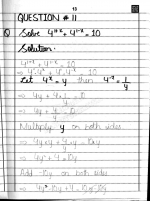 13
QUESTION # 11
Q Solve 4^{1+x} + 4^{1-x} = 10
Solution:
4^{1+x} + 4^{1-x} = 10
⇒ 4·4^x + 4·4^{-x} = 10
Let 4^x = y then 4^{-x} = 1/y
⇒ 4y + 4·1/y = 10
⇒ 4y + 4/y = 10
Multiply y on both sides
⇒ 4y·y + 4/y·y = 10·y
⇒ 4y² + 4 = 10y
10y on both sides